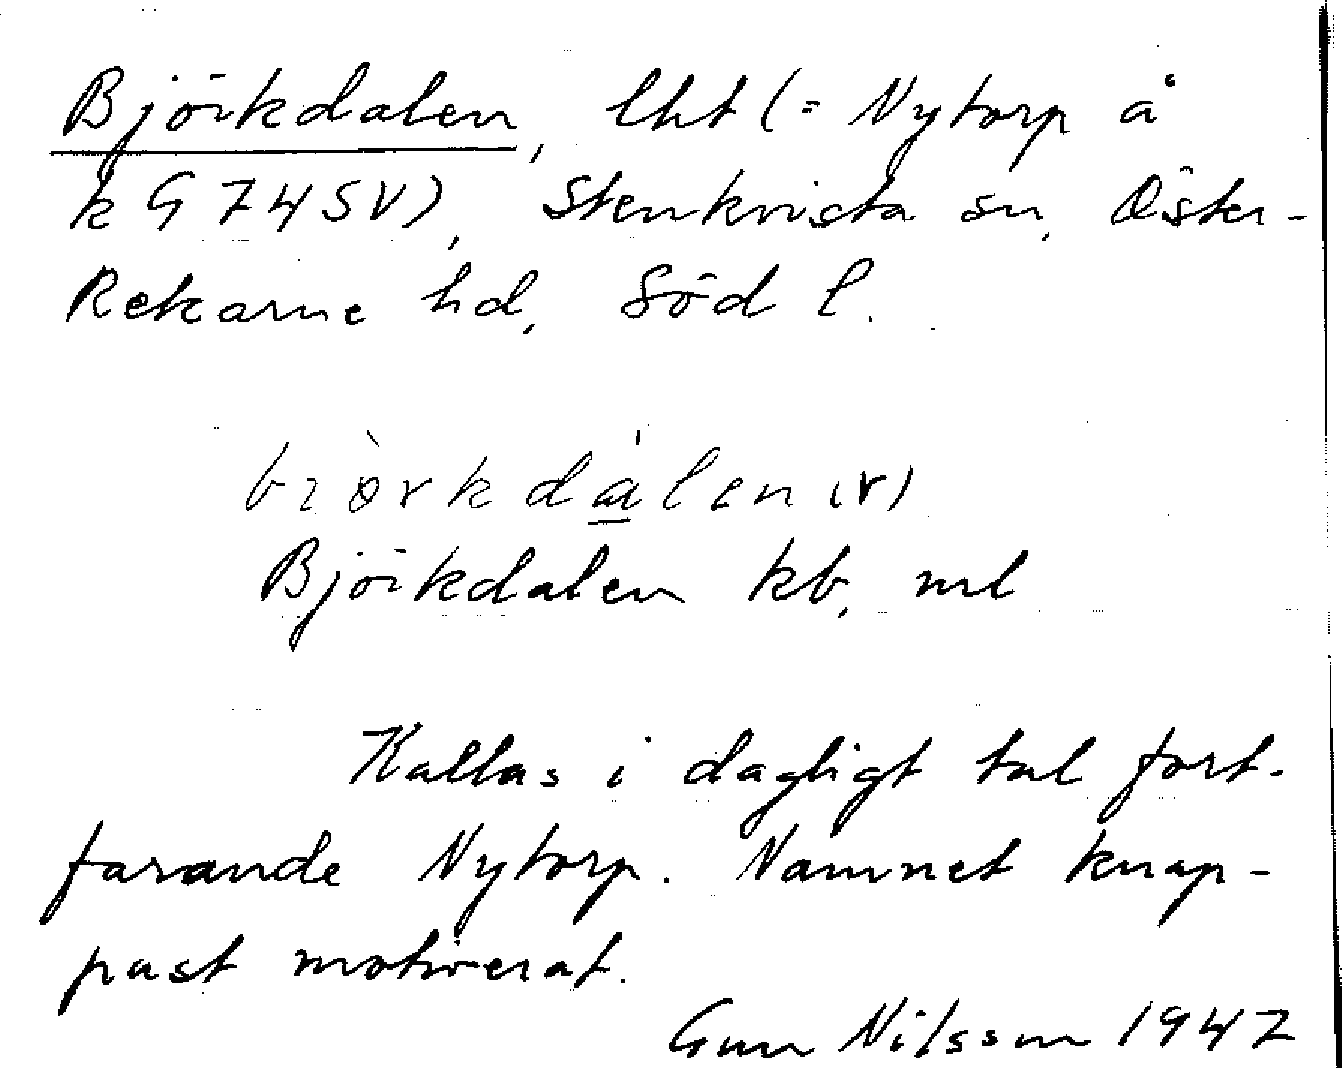 Björkdalen, lht (= Nytorp å
k G 74 SV), Stenkvista sn, Öster-
Rekarne hd, Söd l.
biörkdálen (r)
Björkdalen kb, ml
Kallas i dagligt tal fort-
farande Nytorp. Namnet knap-
past motiverat.
Gun Nilsson 1947